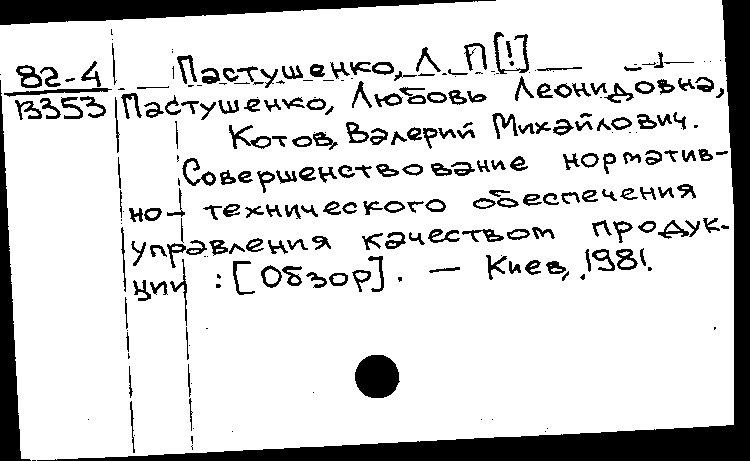 82-4 Пастушенко, Л. П[!]
В353 Пастушенко, Любовь Леонидовна,
Котов, Валерий Михайлович.
Совершенствование норматив-
но-технического обеспечения
управления качеством продук-
ции : [Обзор]. — Киев, 1981.